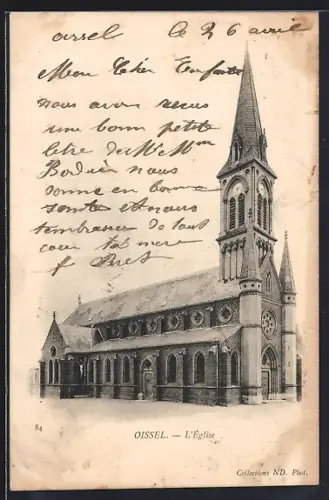 oissel Le 26 avril
Mon Cher Enfants
nous avon recus
une bonn petite
letre de Mr et Mme
Bodier nous
somme en bonne
sante et nous
tembrasson de tout
coeur ta mere
f Bret
84
OISSEL. — L'Église
Collections ND. Phot.